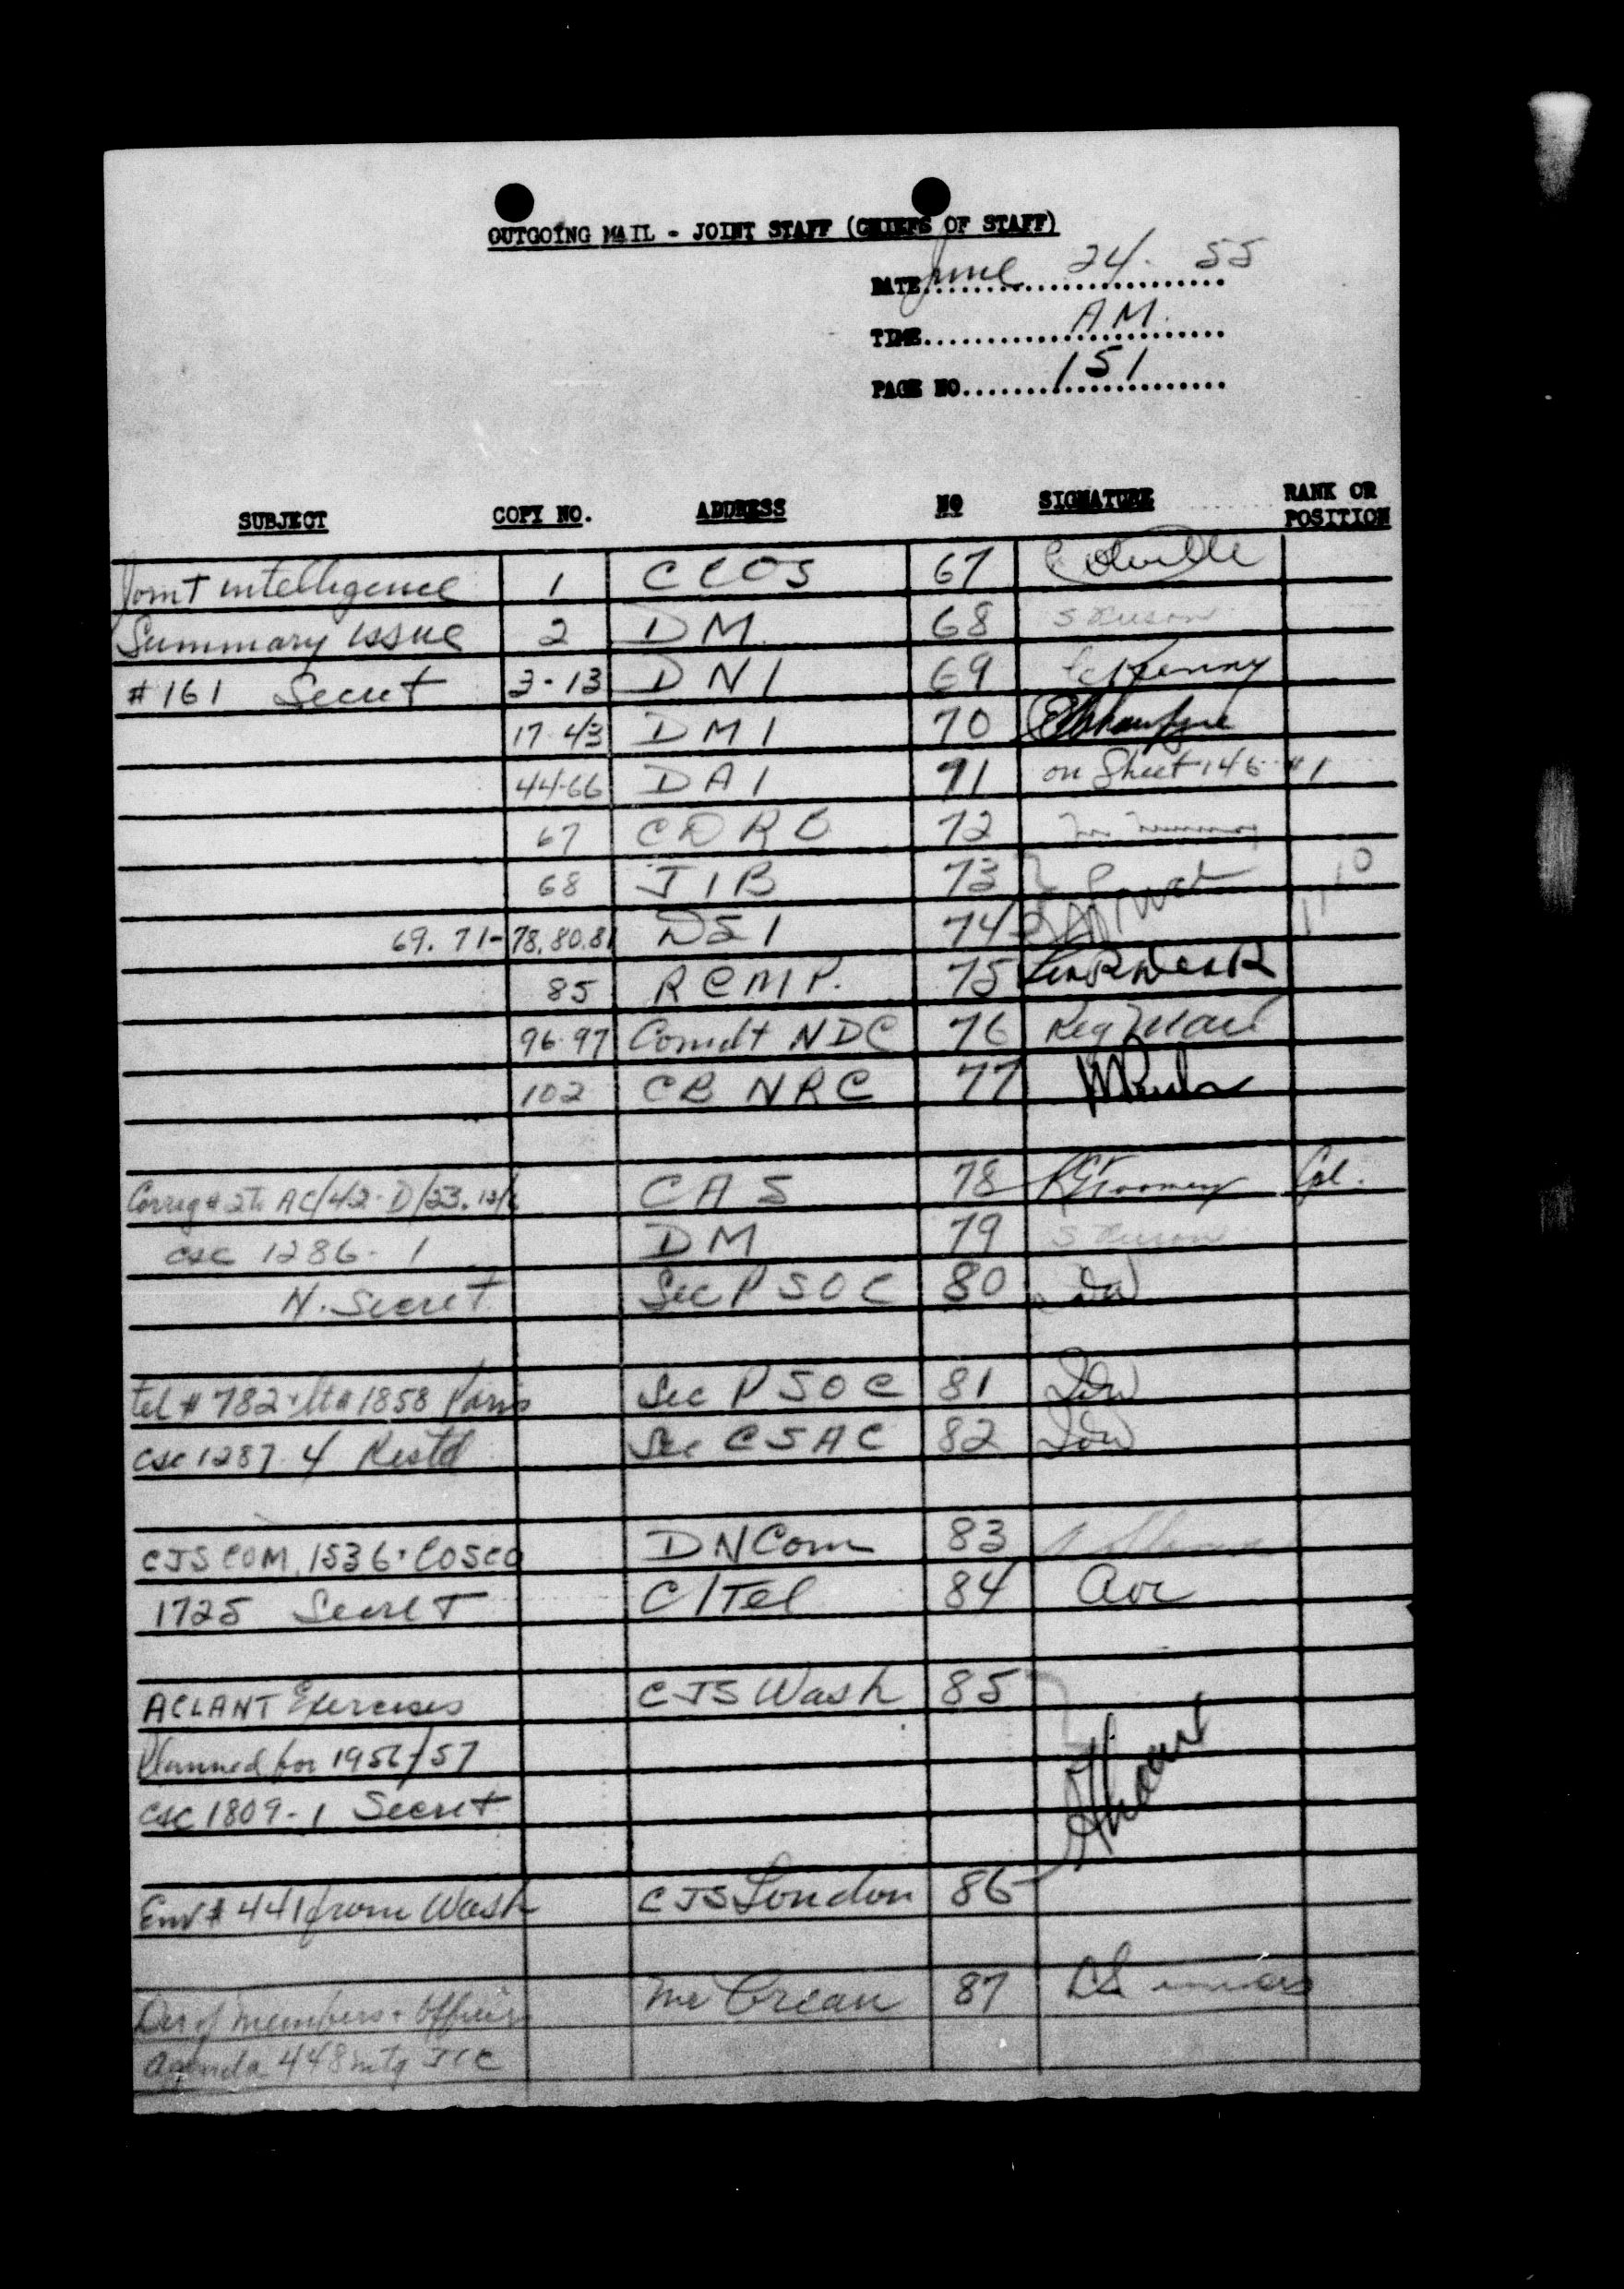 OUTGOING MAIL - JOINT STAFF (CHIEFS OF STAFF)
DATE June 24. 55
TIME AM.
PAGE NO 151
SUBJECT COPY NO. ADDRESS NO SIGNATURE RANK OR POSITION
Joint intelligence 1 CCOS 67
Summary issue 2 DM. 68
#161 Secret 3-13 DNI 69 Kenny
17-43 DMI 70
44-66 DAI 71 on Sheet 146 #1
67 CDRB 72
68 JIB 73
69. 71-78, 80, 81 DSI 74
85 RCMP. 75
96-97 Comdt NDC 76 Reg Mail
102 CB NRC 77
Corrig #2 to AC/42-D/23. CAS 78 Cpl.
csc 1286-1 DM 79
N. Secret Sec PSOC 80
tel #782 + 1858 Paris Sec PSOC 81
csc 1287-4 Restd Sec CSAC 82
CJS COM. 1536 + COSCO DNCom 83
1725 Secret C/Tel 84
ACLANT Exercises CJS Wash 85
Planned for 1956/57
csc 1809-1 Secret
Env # 441 from Wash CJS London 86
members + Officers Mr Crean 87
Agenda 448 mtg JIC